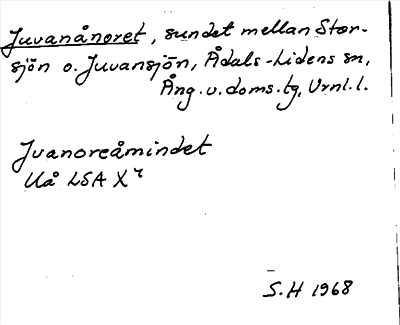 Juvanånoret, sundet mellan Stor-
sjön o. Juvansjön, Ådals-Lidens sn,
Ång. v. doms. tg, Vrnl. l.
Juanoreåmindet
Uå LSA X4
S.H 1968